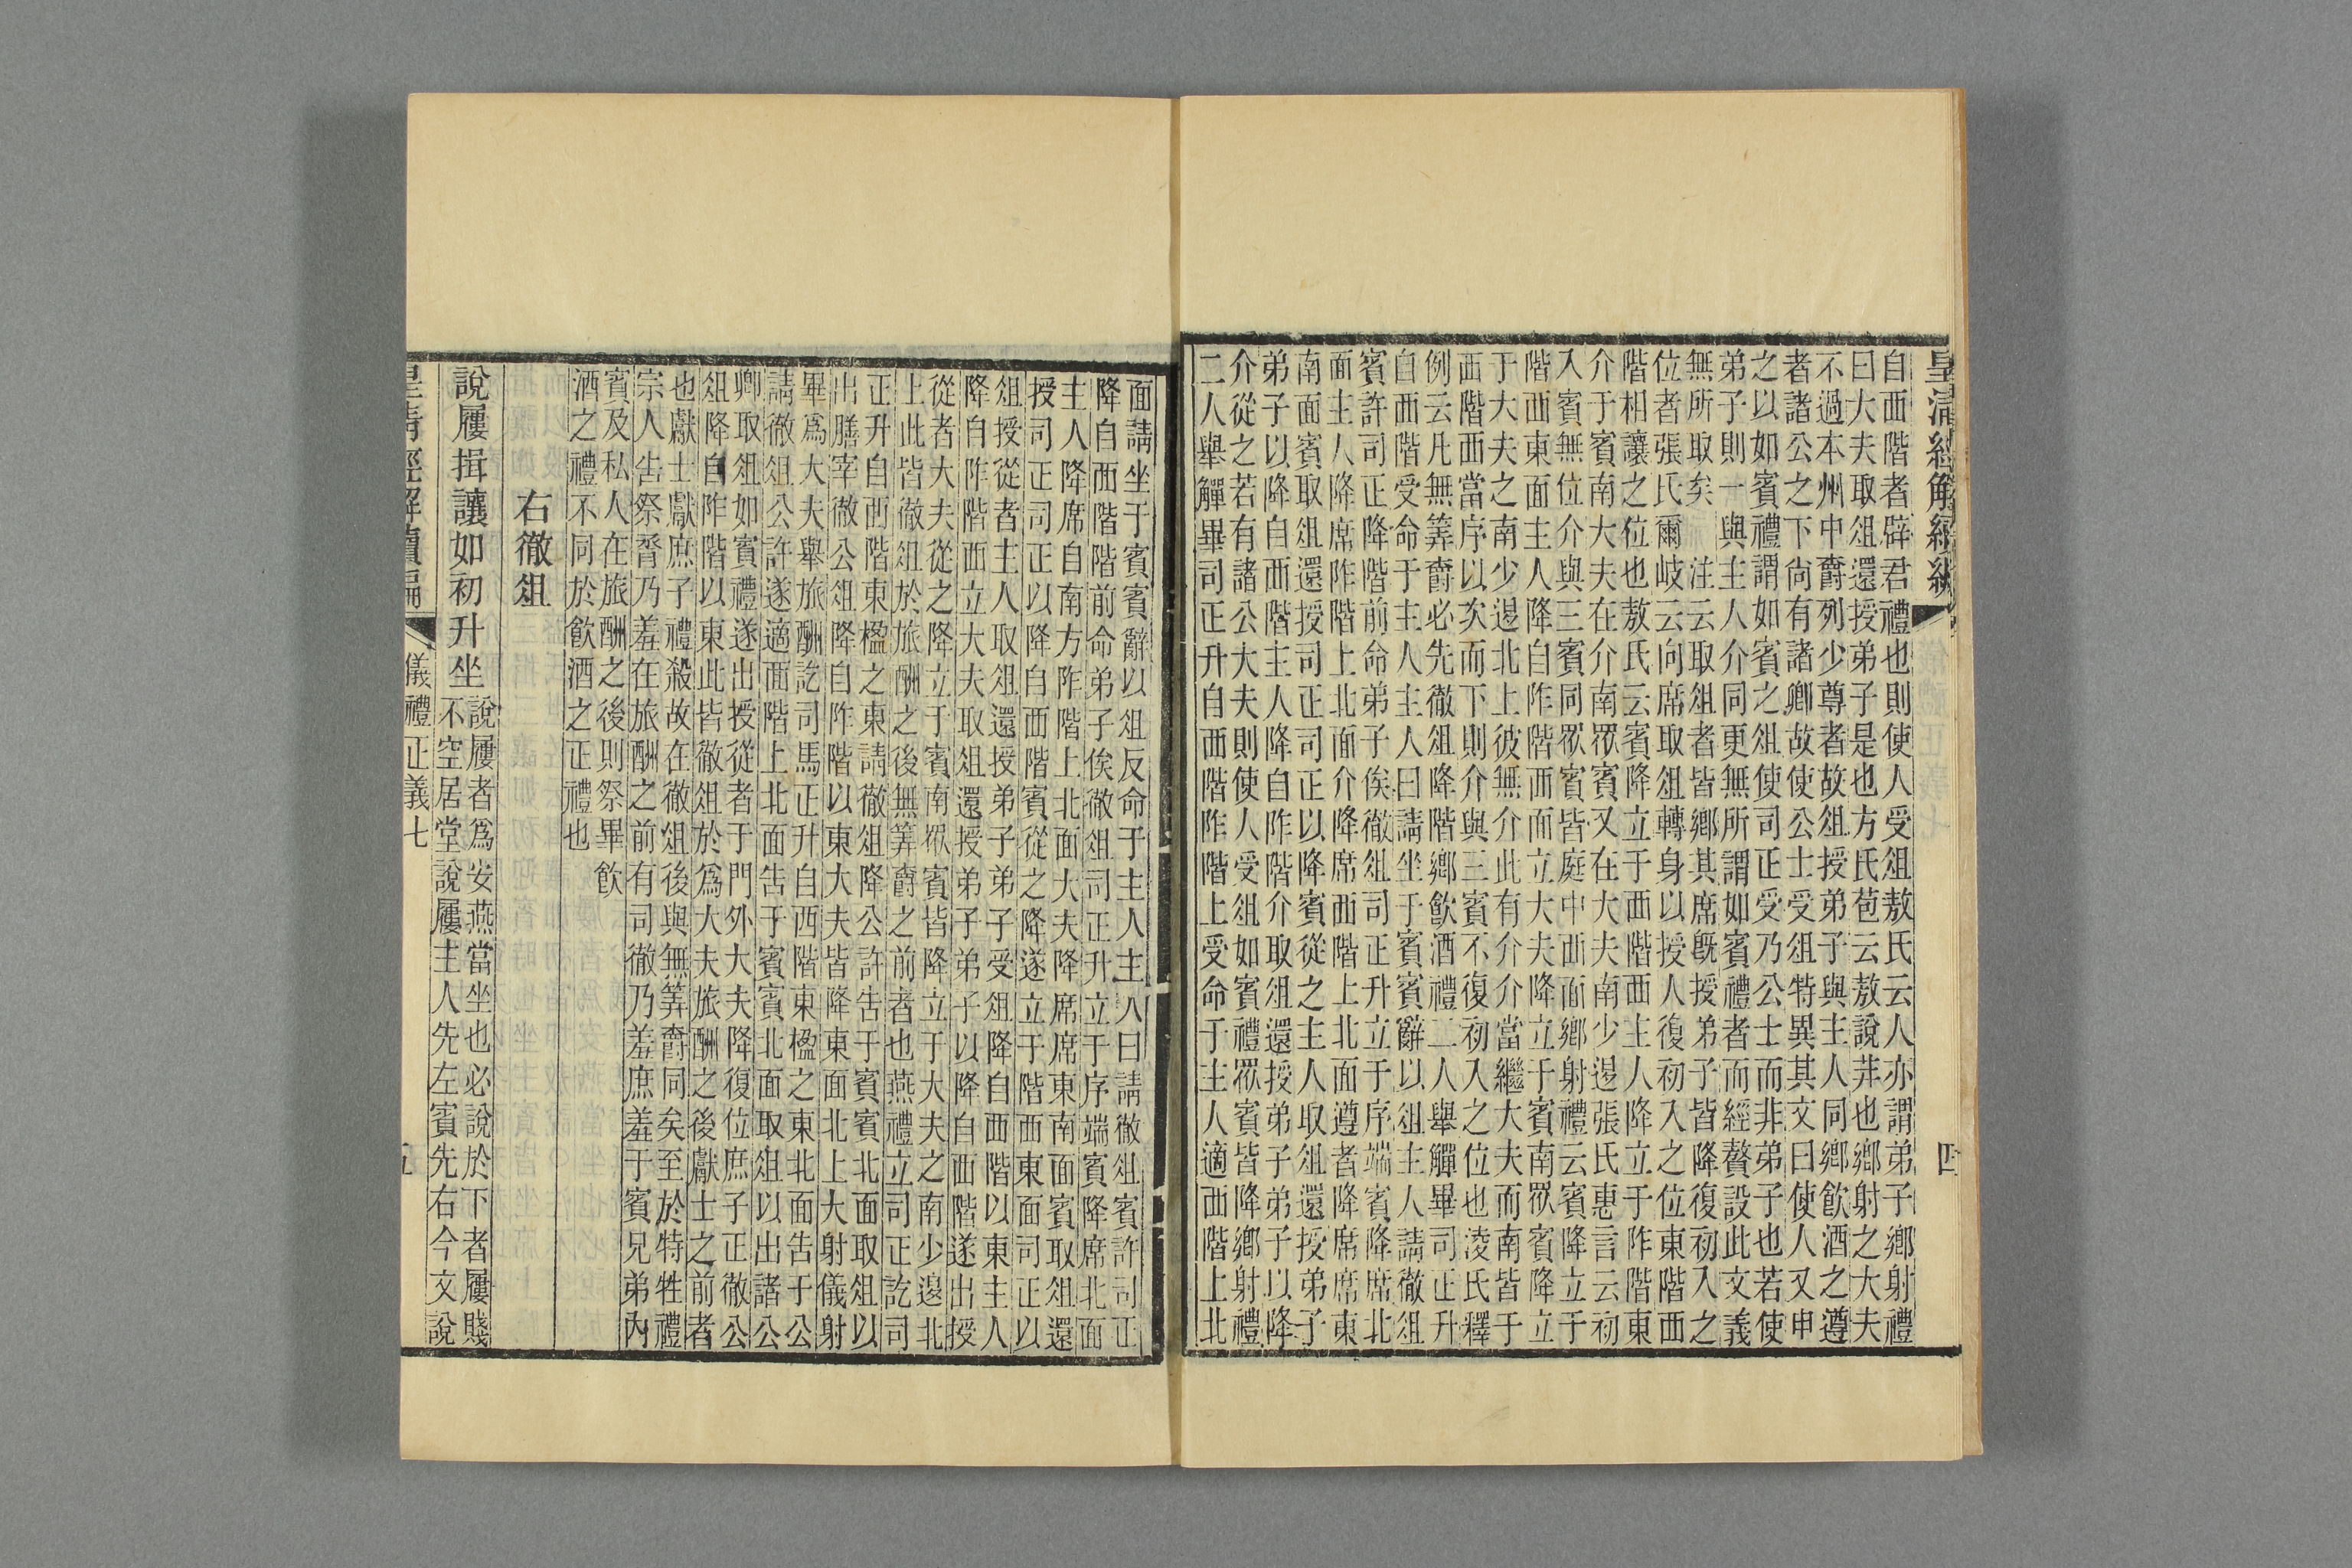 皇清經解續編
四
自西階者辟君禮也則使人受俎敖氏云人亦謂弟子鄉射禮
曰大夫取俎還授弟子是也方氏苞云敖說非也鄉射之大夫
不過本州中爵列少尊者故俎授弟子與主人同鄉飲酒之遵
者諸公之下尚有諸卿故使公士受俎特異其文曰使人又申
之以如賓禮謂如賓之俎使司正受乃公士而非弟子也若使
弟子則一與主人介同更無所謂如賓禮者而經贅設此文義
無所取矣　注云取俎者皆鄉其席既授弟子皆降復初入之
位者張氏爾岐云向席取俎轉身以授人復初入之位東階西
階相讓之位也敖氏云賓降立于西階西主人降立于阼階東
介于賓南大夫在介南眾賓又在大夫南少退張氏惠言云初
入賓無位介與三賓同眾賓皆庭中西面鄉射禮云賓降立于
階西東面主人降自阼階西面立大夫降立于賓南眾賓降立
于大夫之南少退北上彼無介此有介介當繼大夫而南皆于
西階西當序以次而下則介與三賓不復初入之位也淩氏釋
例云凡無筭爵必先徹俎降階鄉飲酒禮二人舉觶畢司正升
自西階受命于主人主人曰請坐于賓賓辭以俎主人請徹俎
賓許司正降階前命弟子俟徹俎司正升立于序端賓降席北
面主人降席阼階上北面介降席西階上北面遵者降席席東
南面賓取俎還授司正司正以降賓從之主人取俎還授弟子
弟子以降自西階主人降自阼階介取俎還授弟子弟子以降
介從之若有諸公大夫則使人受俎如賓禮眾賓皆降鄉射禮
二人舉觶畢司正升自西階阼階上受命于主人適西階上北
面請坐于賓賓辭以俎反命于主人主人曰請徹俎賓許司正
降自西階階前命弟子俟徹俎司正升立于序端賓降席北面
主人降席自南方阼階上北面大夫降席席東南面賓取俎還
授司正司正以降自西階賓從之降遂立于階西東面司正以
俎授從者主人取俎還授弟子弟子受俎降自西階以東主人
降自阼階西面立大夫取俎還授弟子弟子以降自西階遂出授
從者大夫從之降立于賓南眾賓皆降立于大夫之南少退北
上此皆徹俎於旅酬之後無筭爵之前者也燕禮立司正訖司
正升自西階東楹之東請徹俎降公許告于賓賓北面取俎以
出膳宰徹公俎降自阼階以東大夫皆降東面北上大射儀射
畢爲大夫舉旅酬訖司馬正升自西階東楹之東北面告于公
請徹俎公許遂適西階上北面告于賓賓北面取俎以出諸公
卿取俎如賓禮遂出授從者于門外大夫降復位庶子正徹公
俎降自阼階以東此皆徹俎於爲大夫旅酬之後獻士之前者
也獻士獻庶子禮殺故在徹俎後與無筭爵同矣至於特牲禮
宗人告祭脀乃羞在旅酬之前有司徹乃羞庶羞于賓兄弟內
賓及私人在旅酬之後則祭畢飲
酒之禮不同於飲酒之正禮也
右徹俎
說屨揖讓如初升坐
說屨者爲安燕當坐也必說於下者屨賤
不空居堂說屨主人先左賓先右今文說
皇清經解續編
儀禮正義七
五